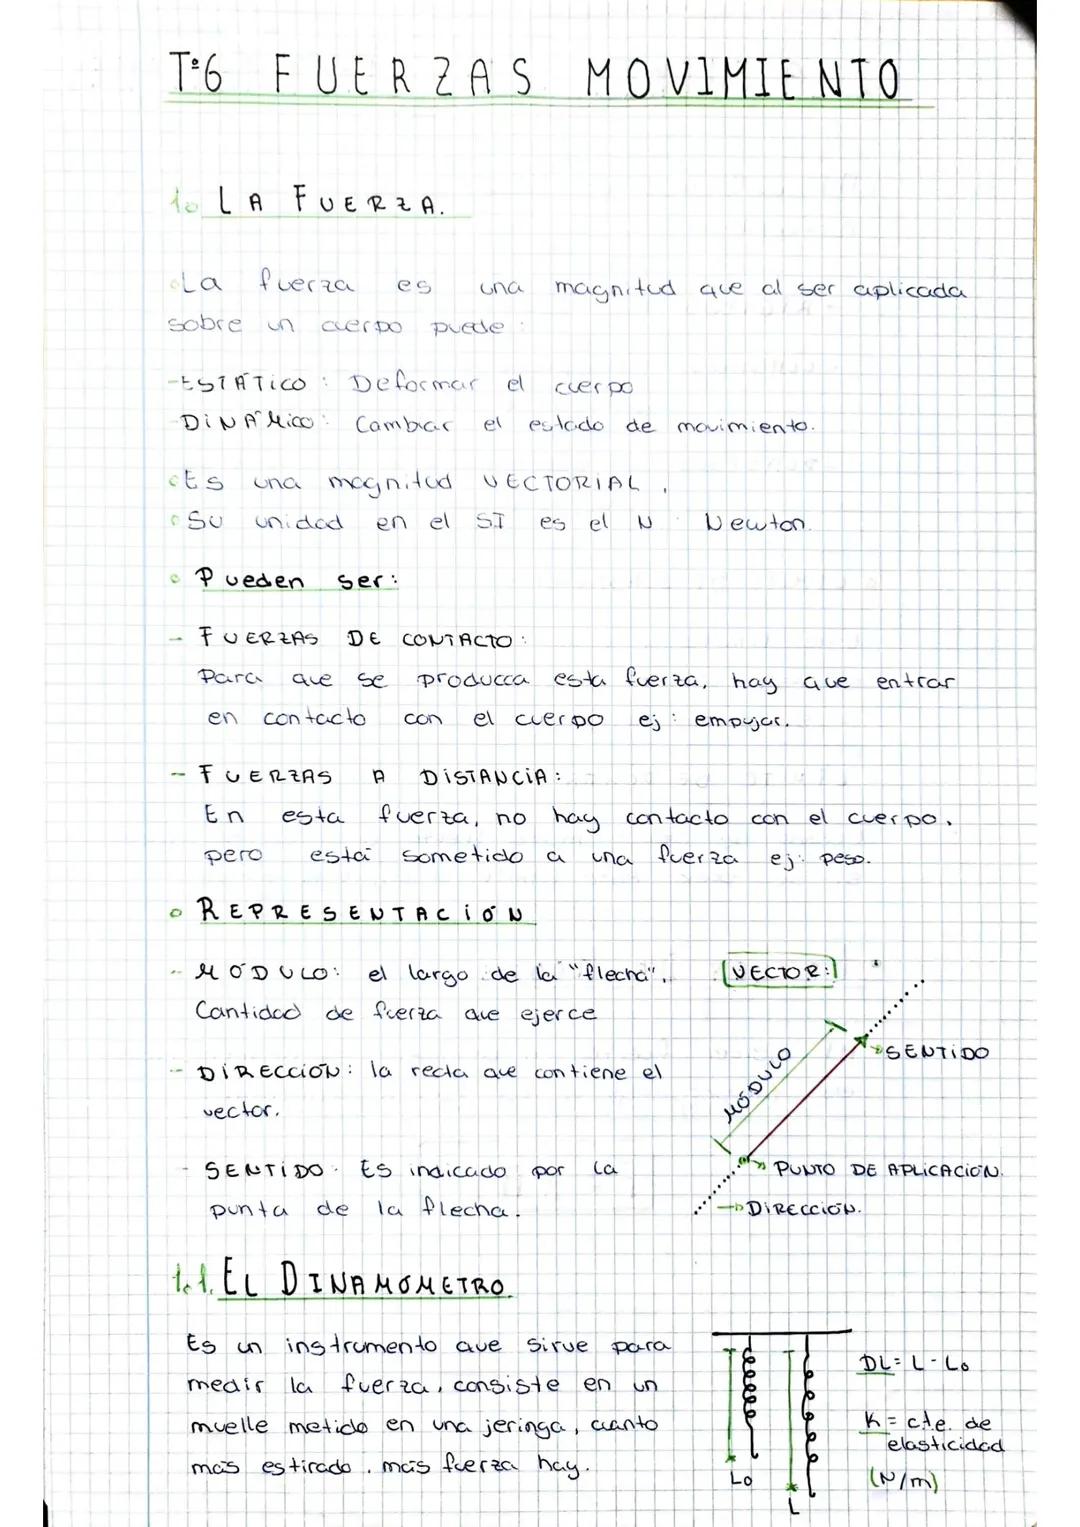 Tº6 FUERZAS MOVIMIENTO
1. LA FUERZA.
La fuerza es una magnitud que al ser aplicada
sobre un cuerpo puede:
-ESTÁTICO: Deformar el cuerpo
-DINÁMICO: Cambiar el estado de movimiento.
Es una magnitud VECTORIAL.
Su unidad en el SI es el N : Newton.
Pueden ser:
- FUERZAS DE CONTACTO:
Para que se producca esta fuerza, hay que entrar
en contacto con el cuerpo ej: empujar.
- FUERZAS A DISTANCIA:
En esta fuerza, no hay contacto con el cuerpo,
pero está sometido a una fuerza ej: peso.
REPRESENTACIÓN
- MÓDULO: el largo de la "flecha".
Cantidad de fuerza que ejerce
- DIRECCIÓN: la recta que contiene el
vector.
- SENTIDO: Es indicado por la
punta de la flecha.
VECTOR:
SENTIDO
MÓDULO
PUNTO DE APLICACIÓN.
DIRECCIÓN.
1.1. EL DINAMÓMETRO
Es un instrumento que sirve para
medir la fuerza, consiste en un
muelle metido en una jeringa, cuanto
más estirado, más fuerza hay.
Lo
L
DL= L - Lo
K = cte. de
elasticidad
(N/m)